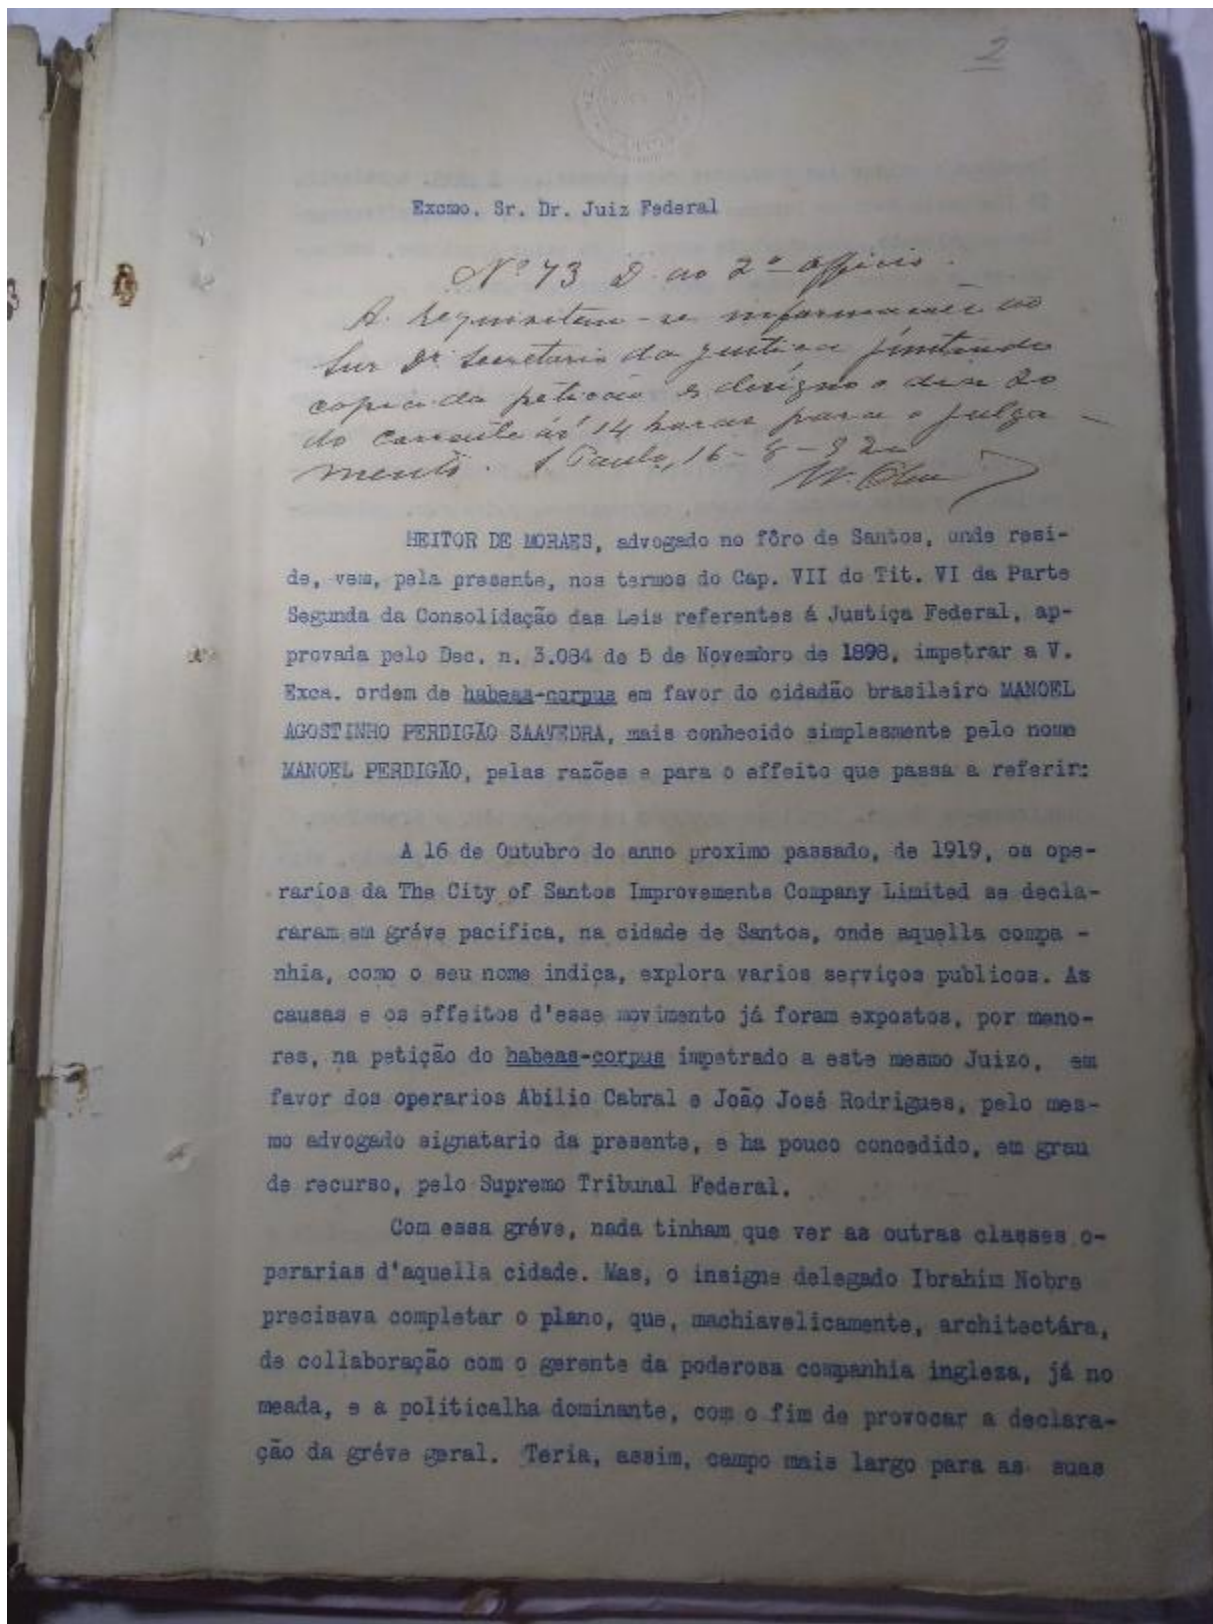 2
Excmo. Sr. Dr. Juiz Federal
Nº 73 D. ao 2º officio.
A. requisitem-se informações ao
Snr Dr. Secretario da Justiça
copia da petição e designo o dia 20
do corrente ás 14 horas para o julga
mento. S Paulo, 16-8-920
HEITOR DE MORAES, advogado no fôro de Santos, onde resi-
de, vem, pela presente, nos termos do Cap. VII do Tit. VI da Parte
Segunda da Consolidação das Leis referentes á Justiça Federal, ap-
provada pelo Dec. n. 3.084 de 5 de Novembro de 1898, impetrar a V.
Exca. ordem de habeas-corpus em favor do cidadão brasileiro MANOEL
AGOSTINHO PERDIGÃO SAAVEDRA, mais conhecido simplesmente pelo nome
MANOEL PERDIGÃO, pelas razões e para o effeito que passa a referir:
A 16 de Outubro do anno proximo passado, de 1919, os ope-
rarios da The City of Santos Improvements Company Limited se decla-
raram em gréve pacifica, na cidade de Santos, onde aquella compa -
nhia, como o seu nome indica, explora varios serviços publicos. As
causas e os effeitos d'esse movimento já foram expostos, por meno-
res, na petição do habeas-corpus impetrado a este mesmo Juizo, em
favor dos operarios Abilio Cabral e João José Rodrigues, pelo mes-
mo advogado signatario da presente, e ha pouco concedido, em grau
de recurso, pelo Supremo Tribunal Federal.
Com essa gréve, nada tinham que ver as outras classes o-
perarias d'aquella cidade. Mas, o insigne delegado Ibrahim Nobre
precisava completar o plano, que, machiavelicamente, architectára,
de collaboração com o gerente da poderosa companhia ingleza, já no
meada, e a politicalha dominante, com o fim de provocar a declara-
ção da gréve geral. Teria, assim, campo mais largo para as suas